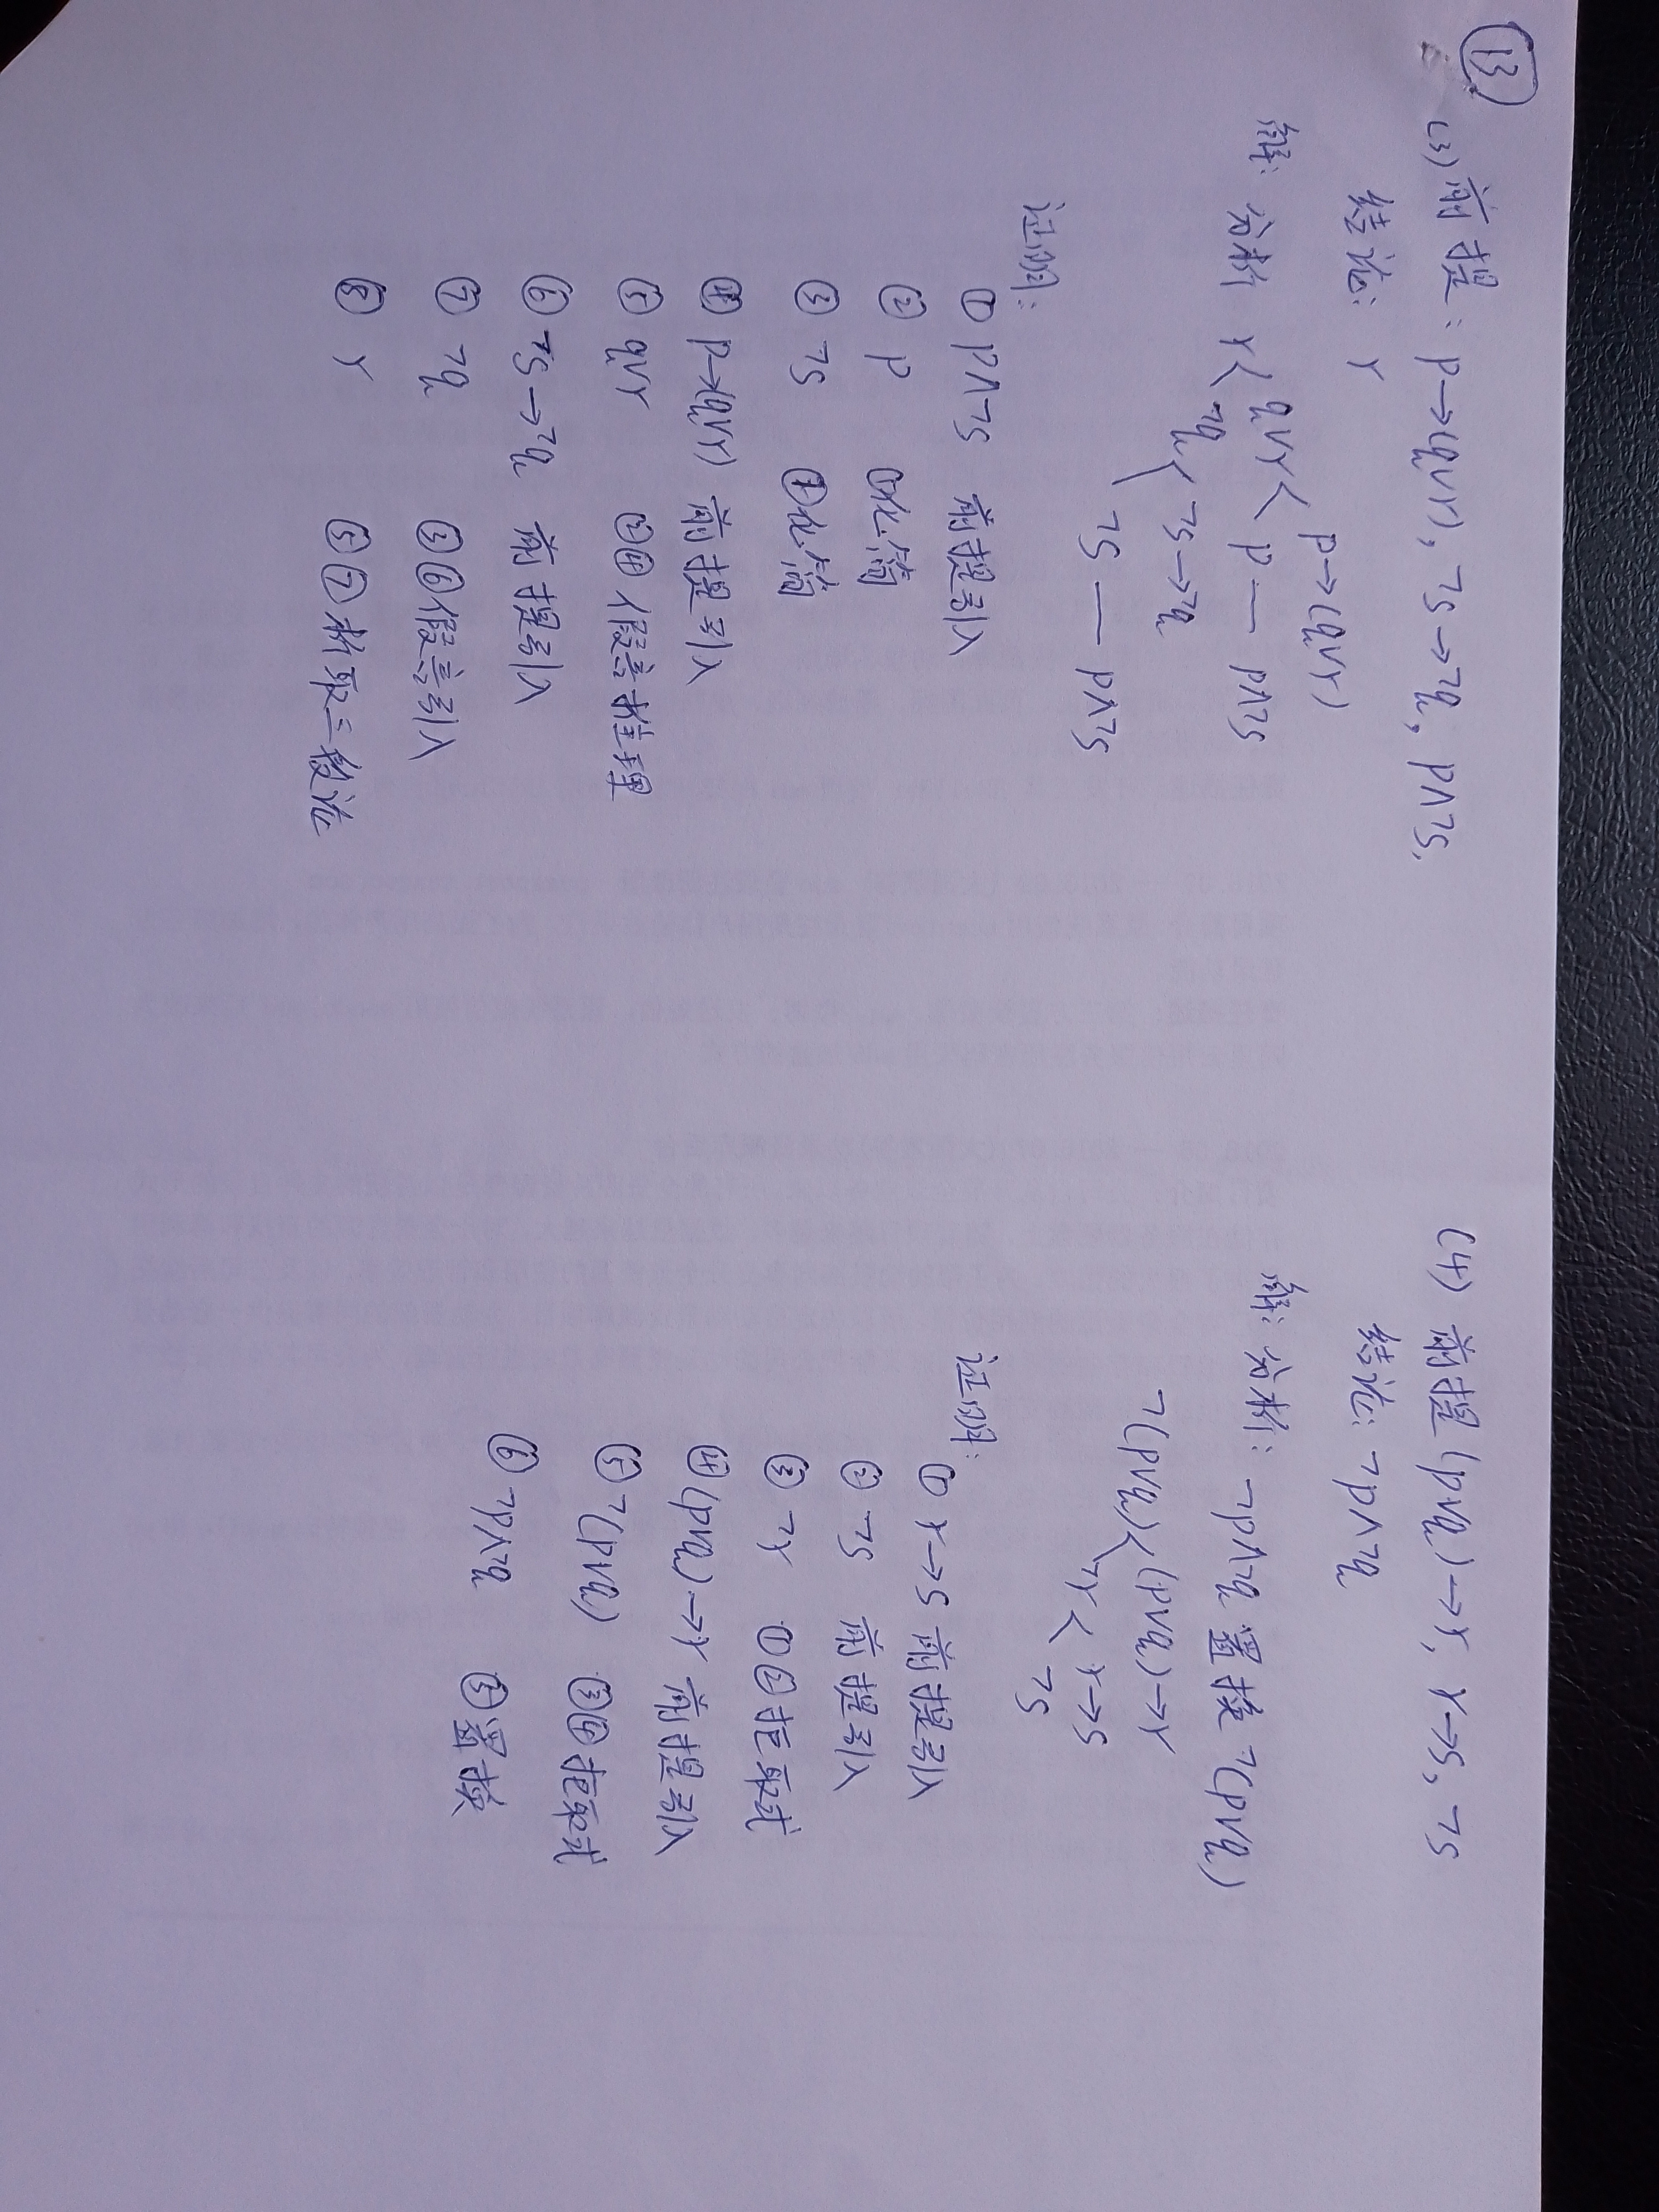 ⑬
(3) 前提: p→(q∨r), ¬s→¬q, p∧¬s,
结论: r
解: 分析 r < q∨r < p→(q∨r)
p — p∧¬s
¬q < ¬s→¬q
¬s — p∧¬s
证明:
① p∧¬s 前提引入
② p ①化简
③ ¬s ①化简
④ p→(q∨r) 前提引入
⑤ q∨r ②④假言推理
⑥ ¬s→¬q 前提引入
⑦ ¬q ③⑥假言引入
⑧ r ⑤⑦析取三段论
(4) 前提(p∨q)→r, r→s, ¬s
结论: ¬p∧¬q
解: 分析: ¬p∧¬q 置换 ¬(p∨q)
¬(p∨q) < (p∨q)→r
¬r < r→s
¬s
证明:
① r→s 前提引入
② ¬s 前提引入
③ ¬r ①②拒取式
④ (p∨q)→r 前提引入
⑤ ¬(p∨q) ③④拒取式
⑥ ¬p∧¬q ⑤置换